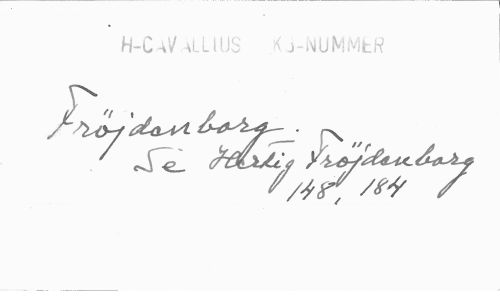 H-CAVALLIUS KB-NUMMER
Fröjdenborg.
Se Hertig Fröjdenborg
148, 184